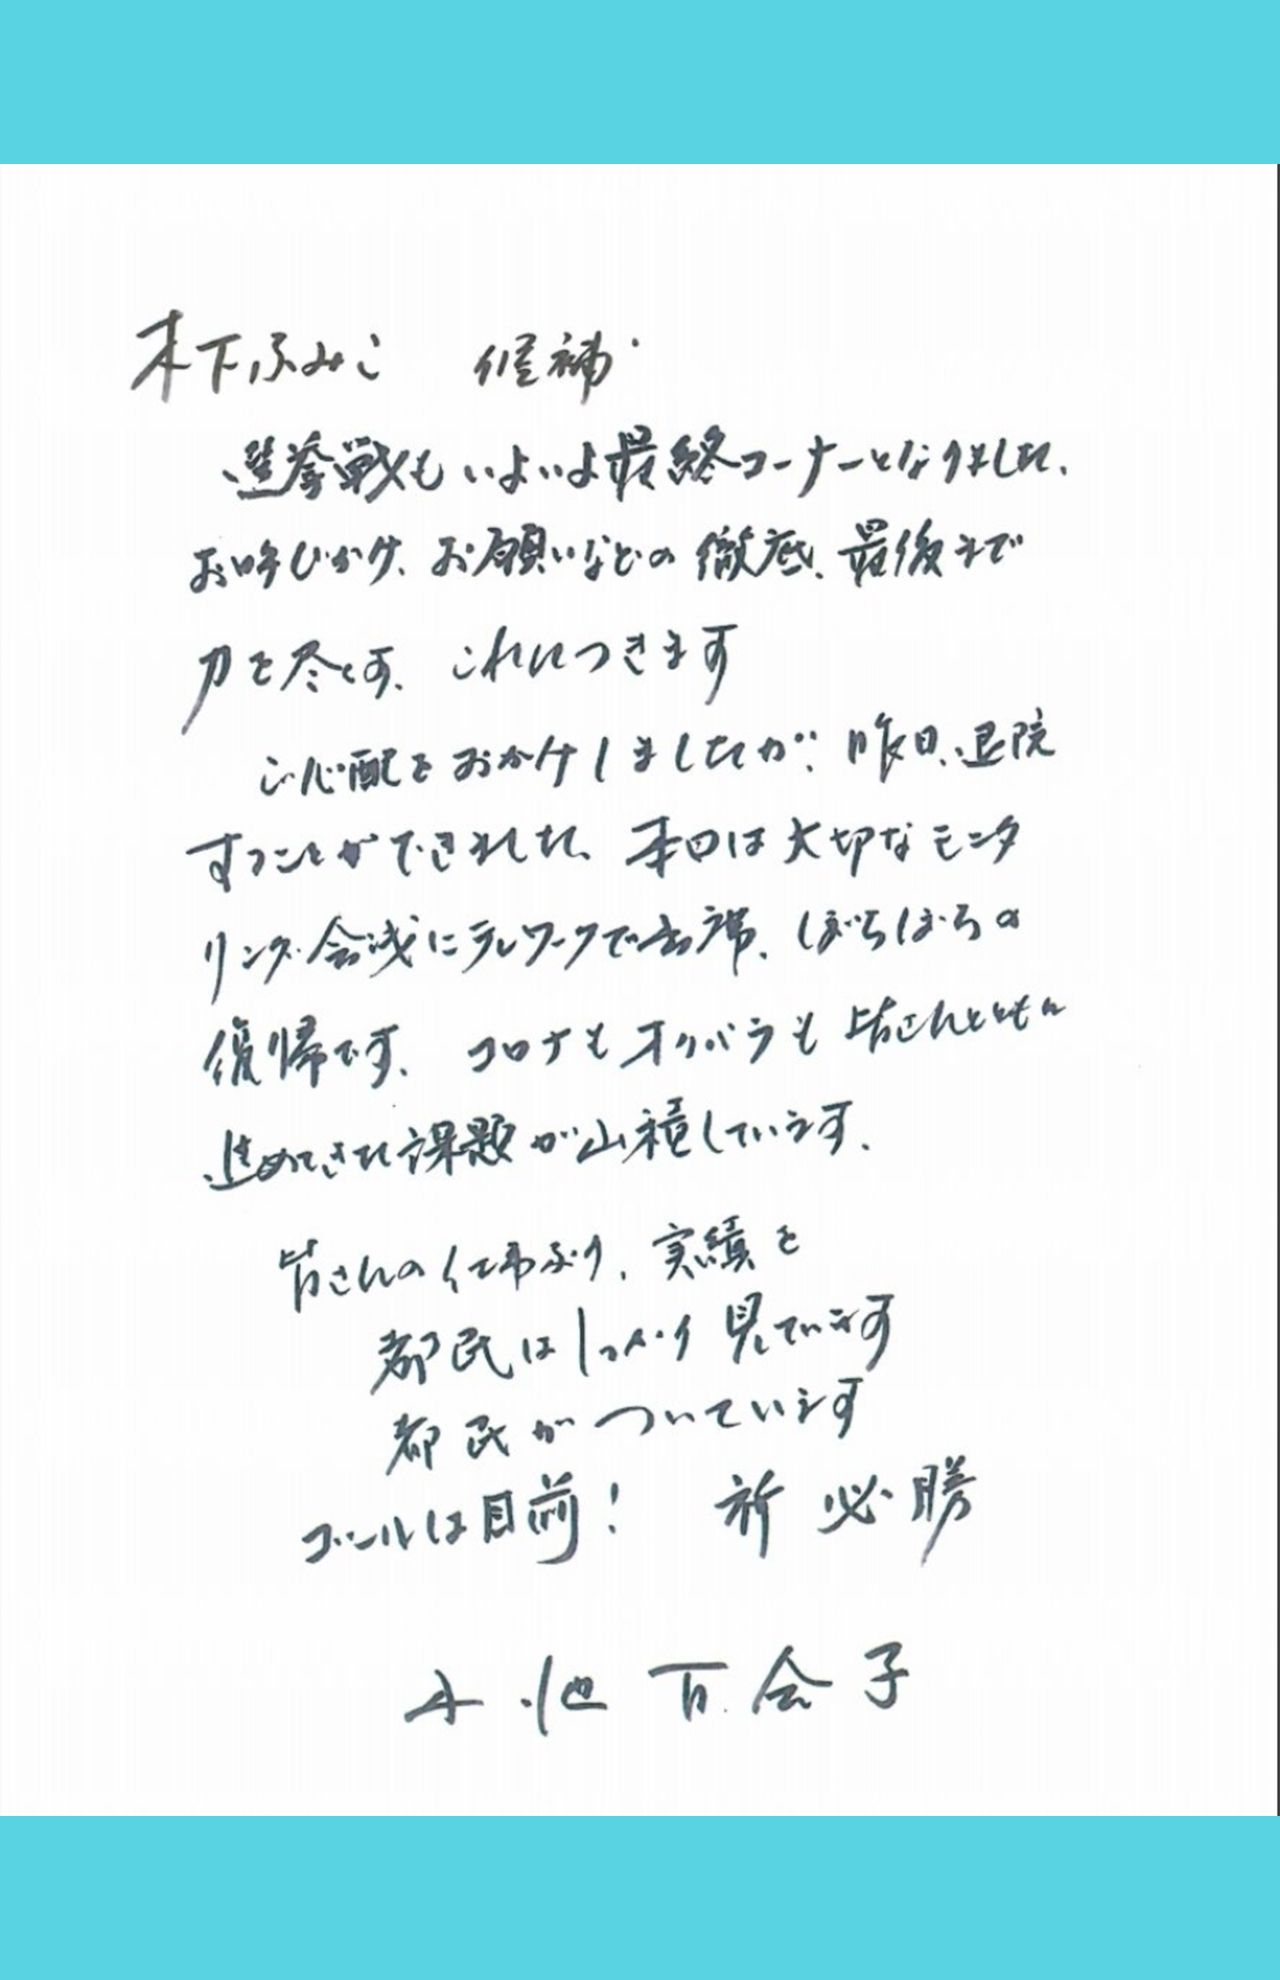 木下ふみこ 候補
選挙戦もいよいよ最終コーナーとなりました、
お呼びかけ、お願いなどの徹底、最後まで
力を尽くす、これにつきます
ご心配をおかけしましたが、昨日、退院
することができました、本日は大切なモニタ
リング会議にテレワークで出席、ぼちぼちの
復帰です、コロナもオリパラも皆さんとともに
進めてきた課題が山積しています、
皆さんの仕事ぶり、実績を
都民はしっかり見ています
都民がついています
ゴールは目前! 祈 必勝
小池百合子